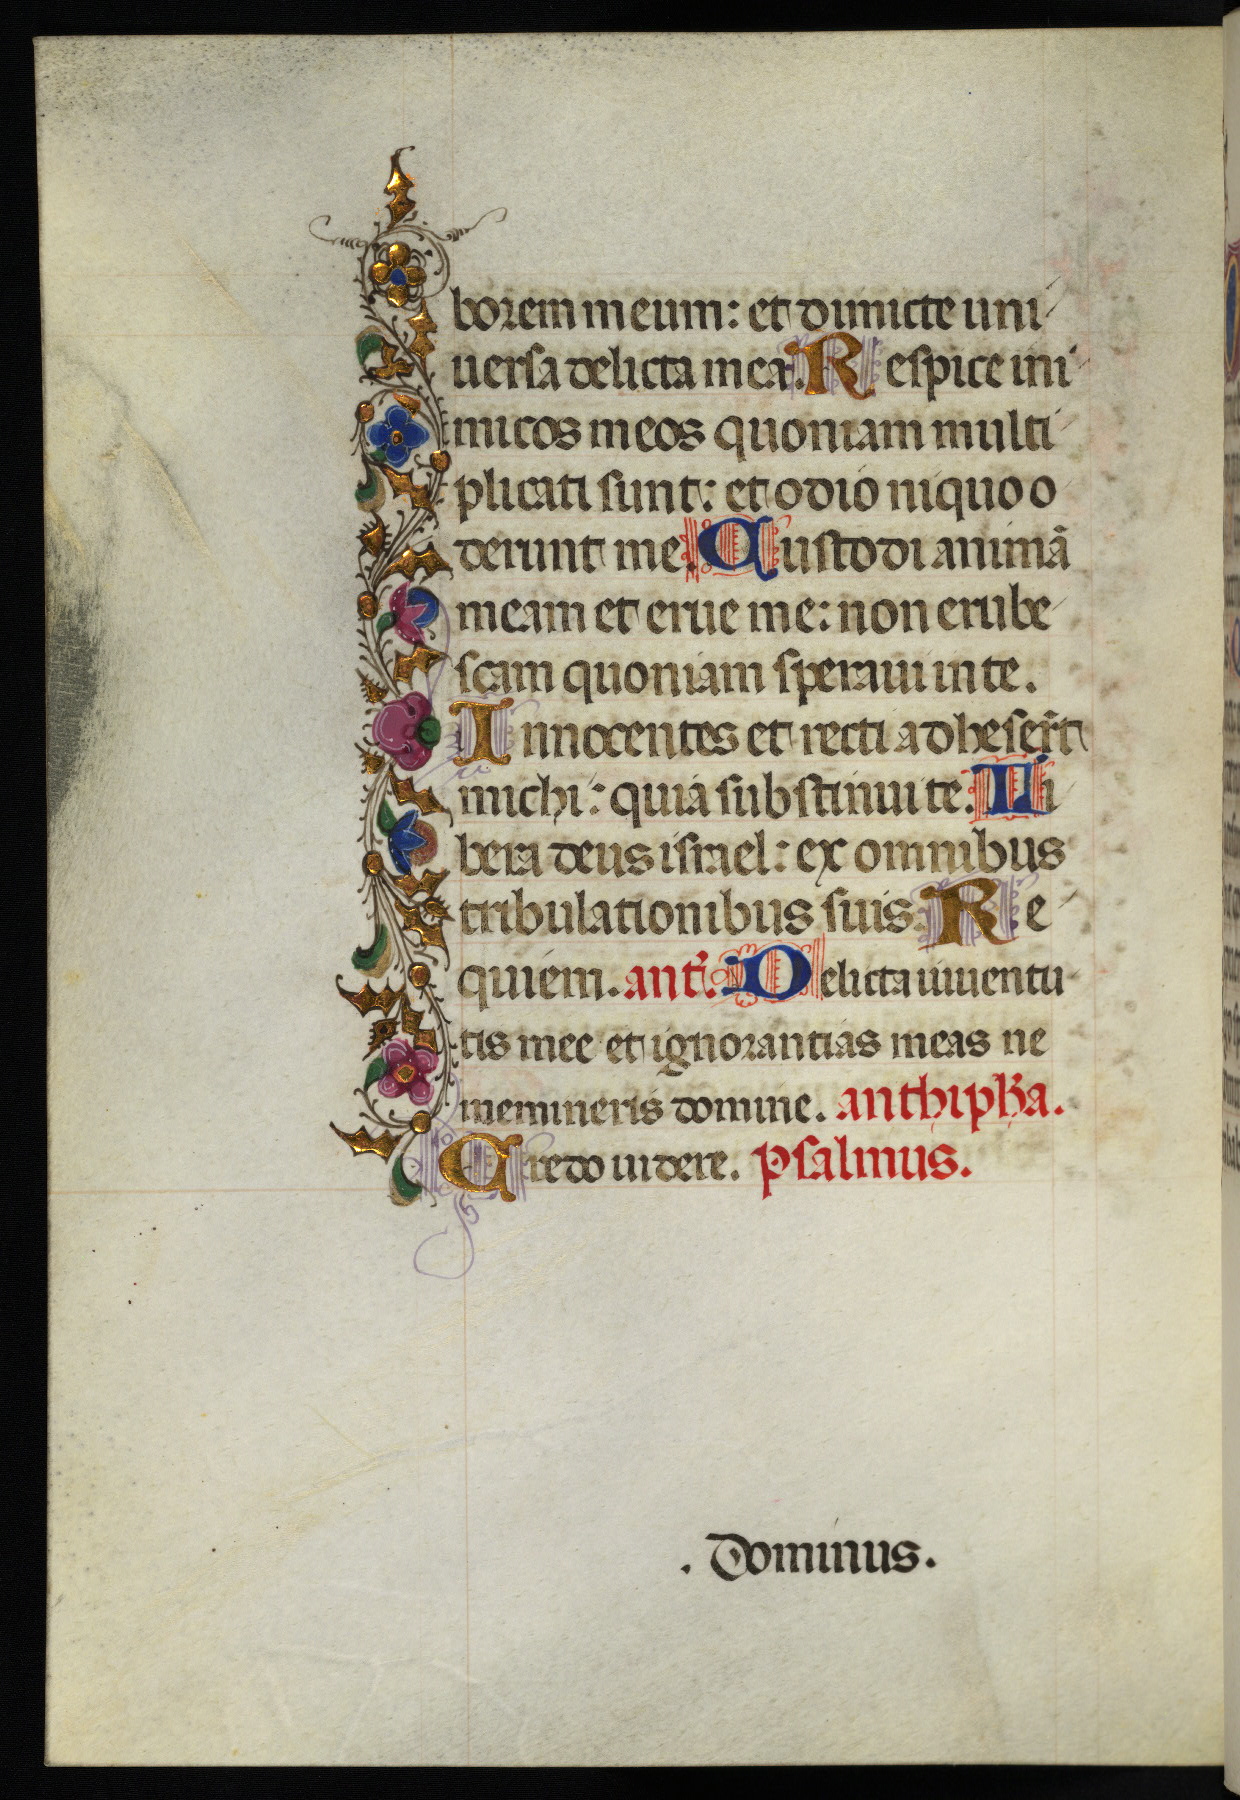 borem meum: et dimicte uni
uersa delicta mea. Respice ini
micos meos quoniam multi
plicati sunt: et odio niquo o
derunt me. Custodi animã
meam et erue me: non erube
scam quoniam speraui in te.
Innocentes et recti adheser̃t
michi: quia substinui te. Li
bera deus israel: ex omnibus
tribulationibus suis. Re
quiem. ant̃. Delicta iuuentu
tis mee et ignorantias meas ne
memineris domine. anthipħa.
Credo uidere. psalmus.
. Dominus.